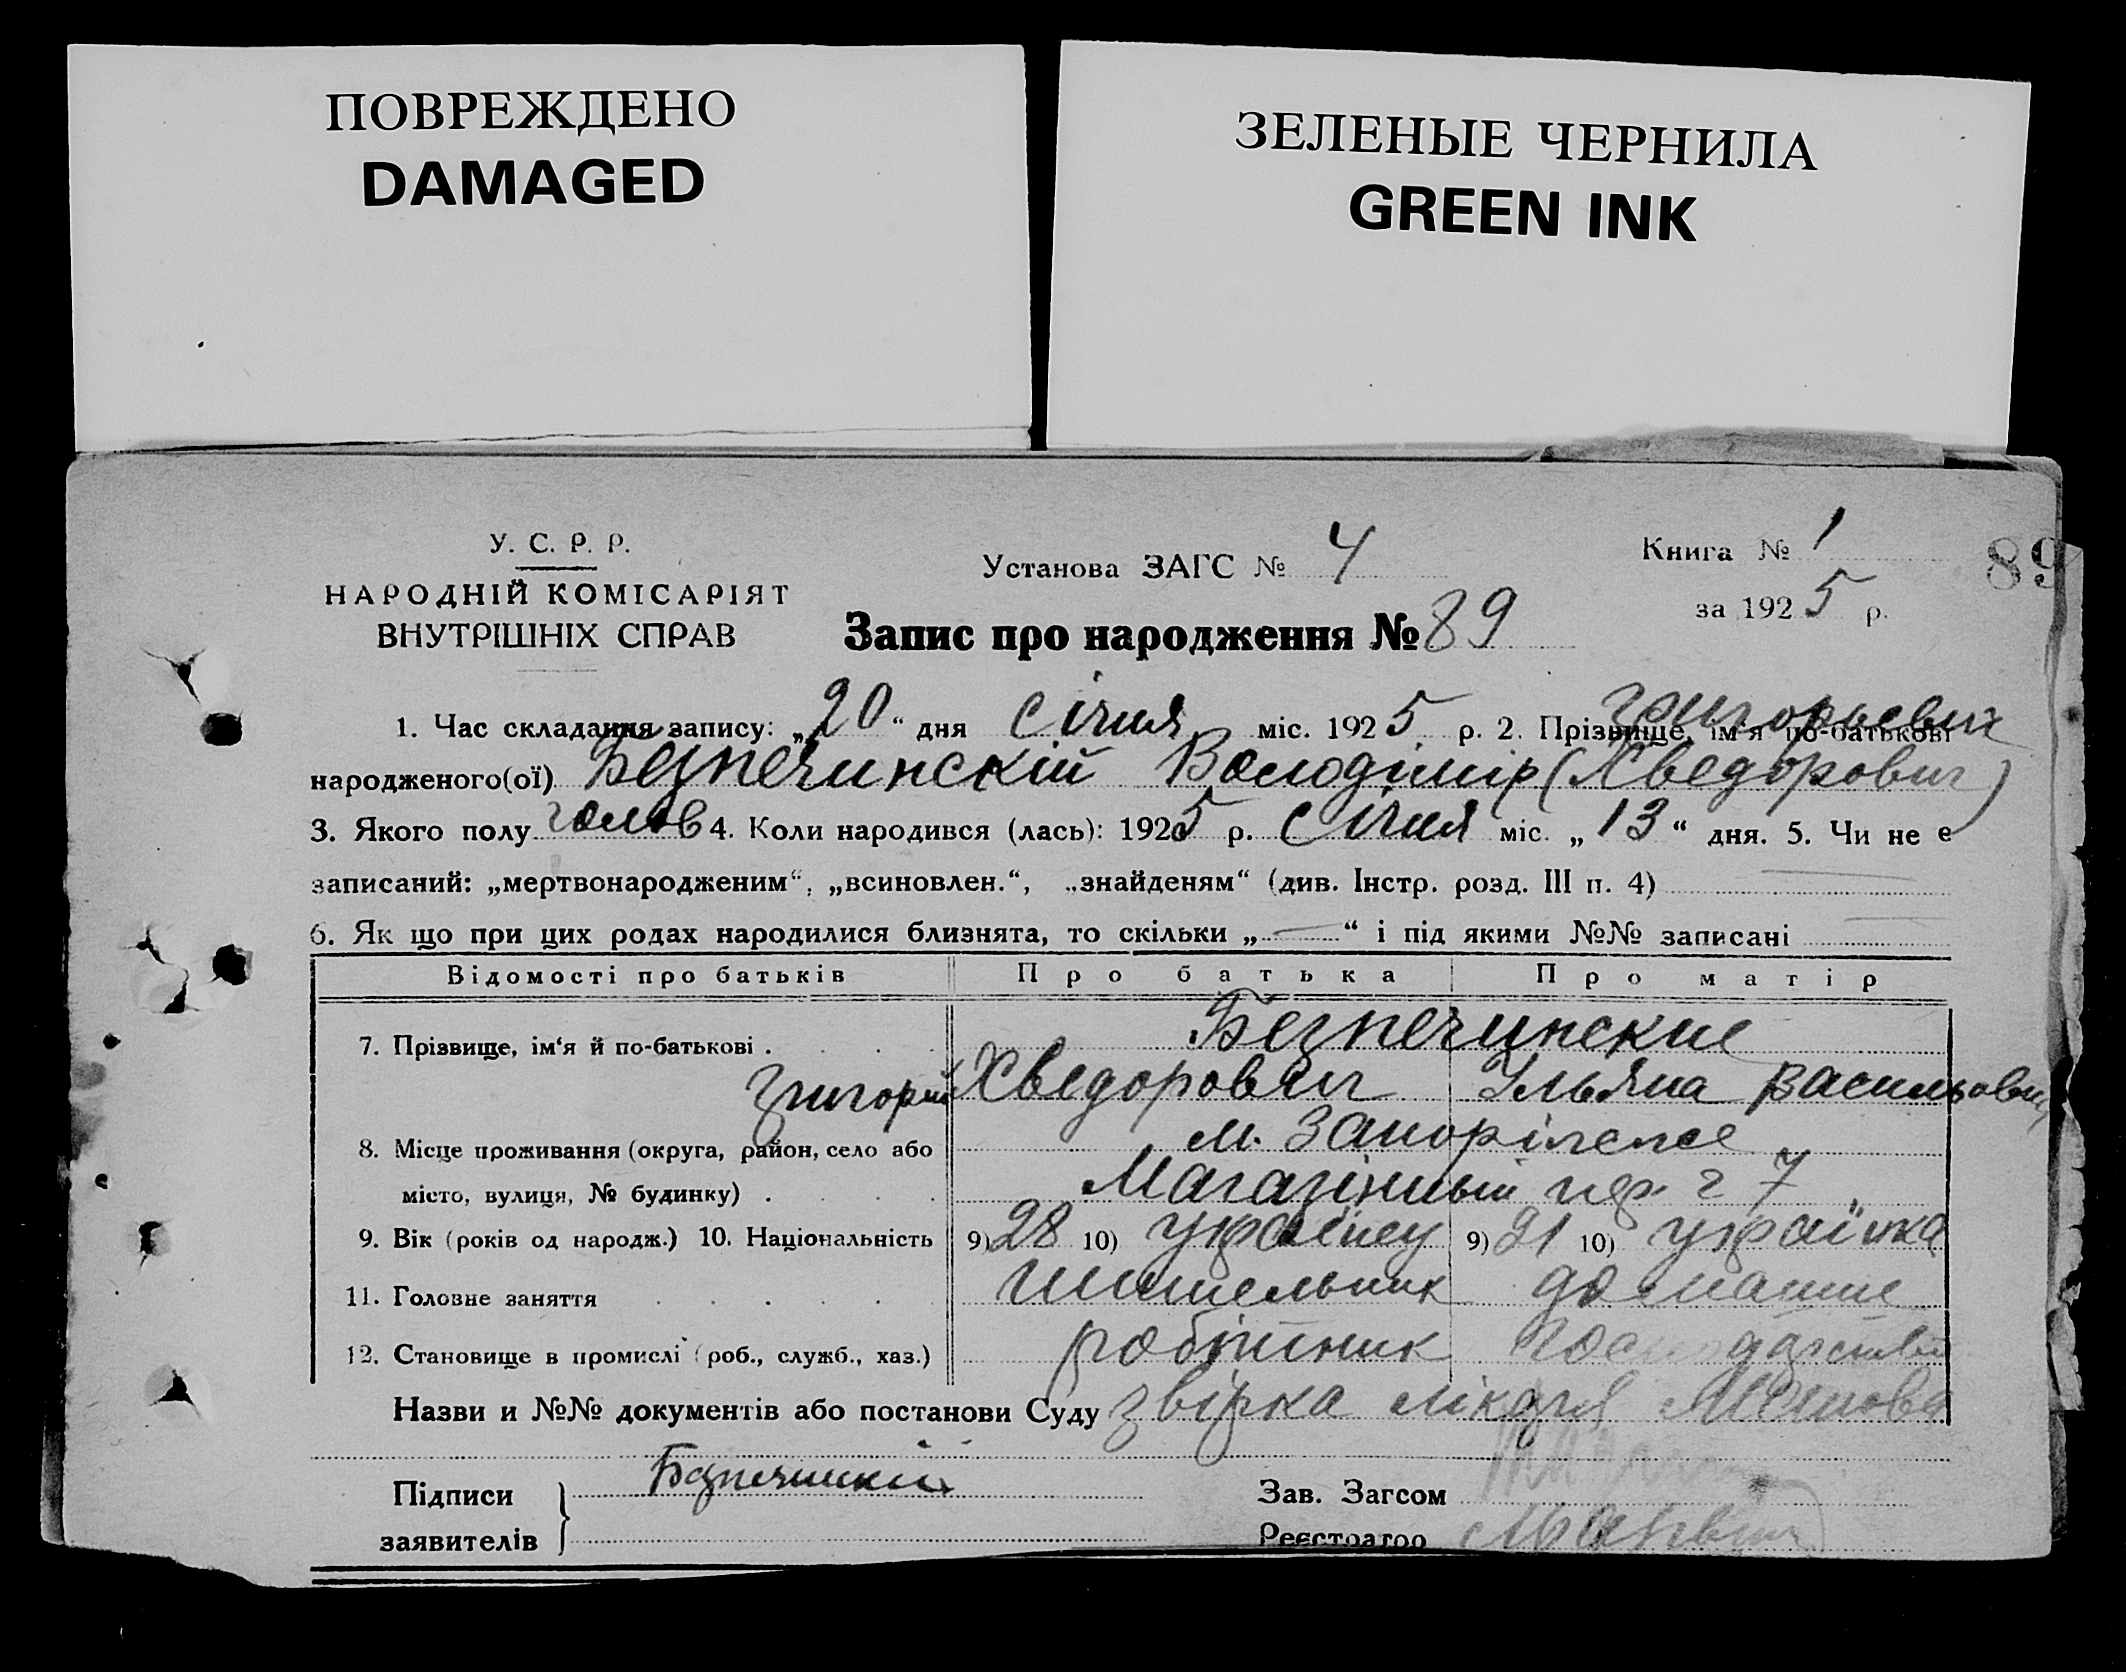 ПОВРЕЖДЕНО
DAMAGED
ЗЕЛЕНЫЕ ЧЕРНИЛА
GREEN INK
У. С. Р. Р.
НАРОДНІЙ КОМІСАРІЯТ
ВНУТРІШНІХ СПРАВ
Установа ЗАГС № 4
Книга № 1
за 1925 р.
89
Запис про народження № 89
Григорьевич
1. Час складання запису: „20“ дня Січня міс. 1925 р. 2. Прізвище, ім'я по-батькові
народженого(ої) Безпечинскій Володімір (Хведорович)
3. Якого полу голов 4. Коли народився (лась): 1925 р. Січня міс. „13“ дня. 5. Чи не є
записаний: „мертвонародженим“, „всиновлен.“, „знайденям“ (див. Інстр. розд. III п. 4)
6. Як що при цих родах народилися близнята, то скільки „—“ і під якими №№ записані
Відомості про батьків Про батька Про матір
7. Прізвище, ім'я й по-батькові . . . . Безпечинские
Григорий Хведорович Ульяна Васильовна
8. Місце проживання (округа, район, село або м. Запоріжжє
місто, вулиця, № будинку) . . . . Магазінный 7
9. Вік (років од народж.) 10. Національність 9) 28 10) україnец 9) 21 10) українка
11. Головне заняття . . . . . домашне
12. Становище в промислі (роб., служб., хаз.) робітник
Назви и №№ документів або постанови Суду звірка лікаря
Підписи Безпечинский
заявителів
Зав. Загсом
Реєстратор